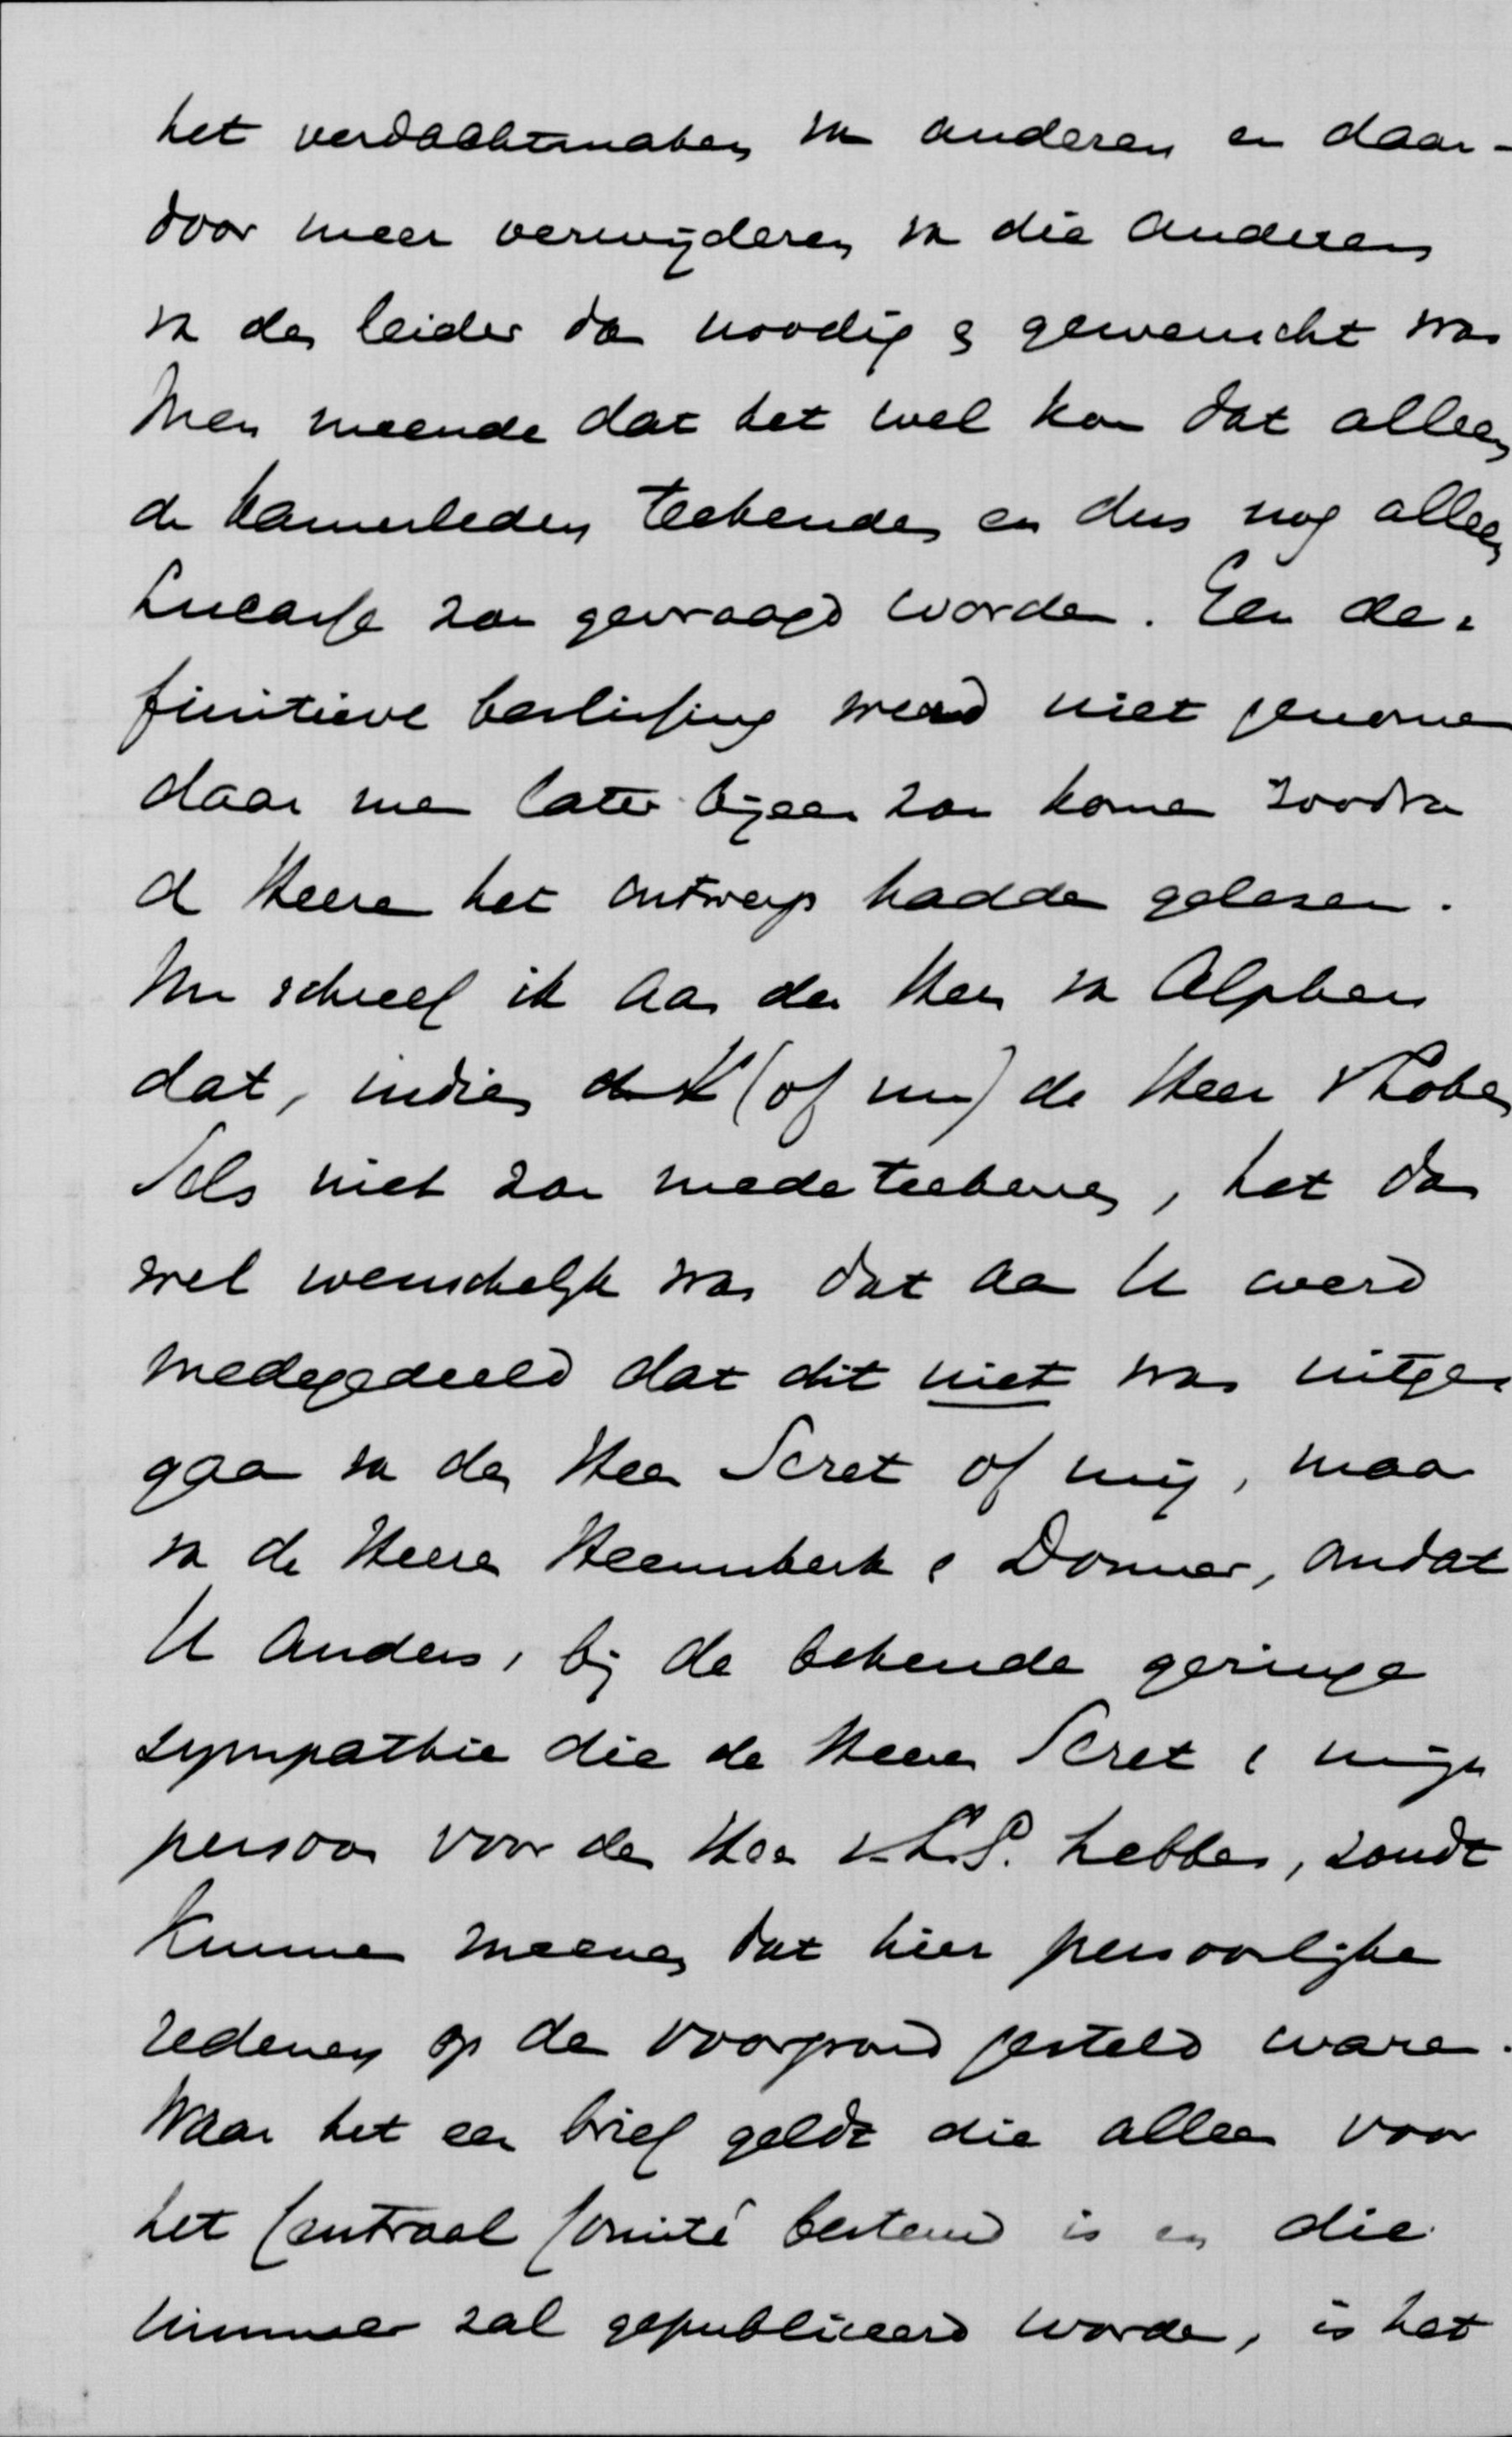 het verdachtmaken van anderen en daar-
door meer verwijderen van die anderen
van den leider dan noodig & gewenscht was
Men meende dat het wel kon dat alleen
de Kamerleden teekenden en dus nog alleen
Lucasse zou gevraagd worden. Een de-
finitieve beslissing werd niet genomen
daar men later bijeen zou komen zoodra
de Heeren het ontwerp hadden gelezen.
Nu schreef ik aan den Heer van Alphen
dat, indien (of nu) de Heer v Loben
Sels niet zou mede teekenen, het dan
wel wenschelijk was dat aan U werd
medegedeeld dat dit niet was uitge-
gaan van den Heer Seret of mij, maar
van de Heeren Heemskerk & Donner, omdat
U anders, bij de bekende geringe
sympathie die de Heeren Seret & mijn
persoon voor den Heer v.L.S. hebben, zoudt
kunnen meenen dat hier persoonlijke
redenen op de voorgrond gesteld waren.
Waar het een brief geldt die alleen voor
het Centraal Comité bestemd is en die
nimmer zal gepubliceerd worden, is het